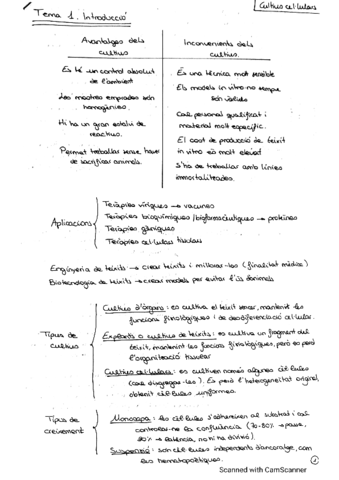 Cultius cel·lulars
Tema 1. Introducció
Avantatges dels cultius
Inconvenients dels cultius.
Es té un control absolut de l'ambient
És una tècnica molt sensible
Les mostres emprades són homogènies.
Els models in vitro no sempre són vàlids
Hi ha un gran estalvi de reactius.
Cal personal qualificat i material molt específic.
Permet treballar sense haver de sacrificar animals.
El cost de producció de teixit in vitro és molt elevat
S'ha de treballar amb línies immortalitzades.
Aplicacions
Teràpies víriques → vacunes
Teràpies bioquímiques / biofarmacèutiques → proteïnes
Teràpies gèniques
Teràpies cel·lulars tissulars
Enginyeria de teixits → crear teixits i millorar-los (finalitat mèdica)
Biotecnologia de teixits → crear models per evitar l'ús d'animals
Tipus de cultiu
Cultius d'òrgans: es cultiva el teixit sencer, mantenint les
funcions fisiològiques i de desdiferenciació cel·lular.
Explants o cultius de teixits: es cultiva un fragment del
teixit, mantenint les funcions fisiològiques, però es perd
l'organització tissular
Cultius cel·lulars: es cultiven només algunes cèl·lules
(cal disgregar-les). Es perd l'heterogeneïtat original,
obtenint cèl·lules uniformes.
Tipus de creixement
Monocapa: les cèl·lules s'adhereixen al substrat i cal
controlar-ne la confluència (70-80% → passe,
90% → latència, no hi ha divisió).
Suspensió: són cèl·lules independents d'ancoratge, com
les hematopoètiques.
1
Scanned with CamScanner